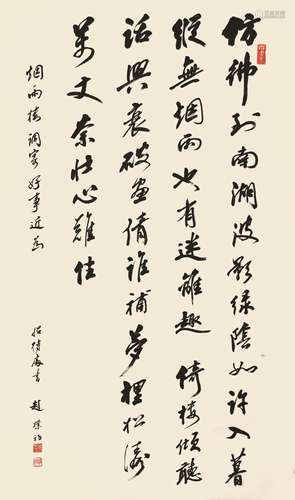 仿彿到南湖波影綠陰如許入暮
縱無烟雨也有迷離趣 倚樓傾聽
話興衰破畫倩誰補 夢裡松濤
萬丈奈壯心難住
烟雨樓 調寄好事近為
招待處書 趙樸初